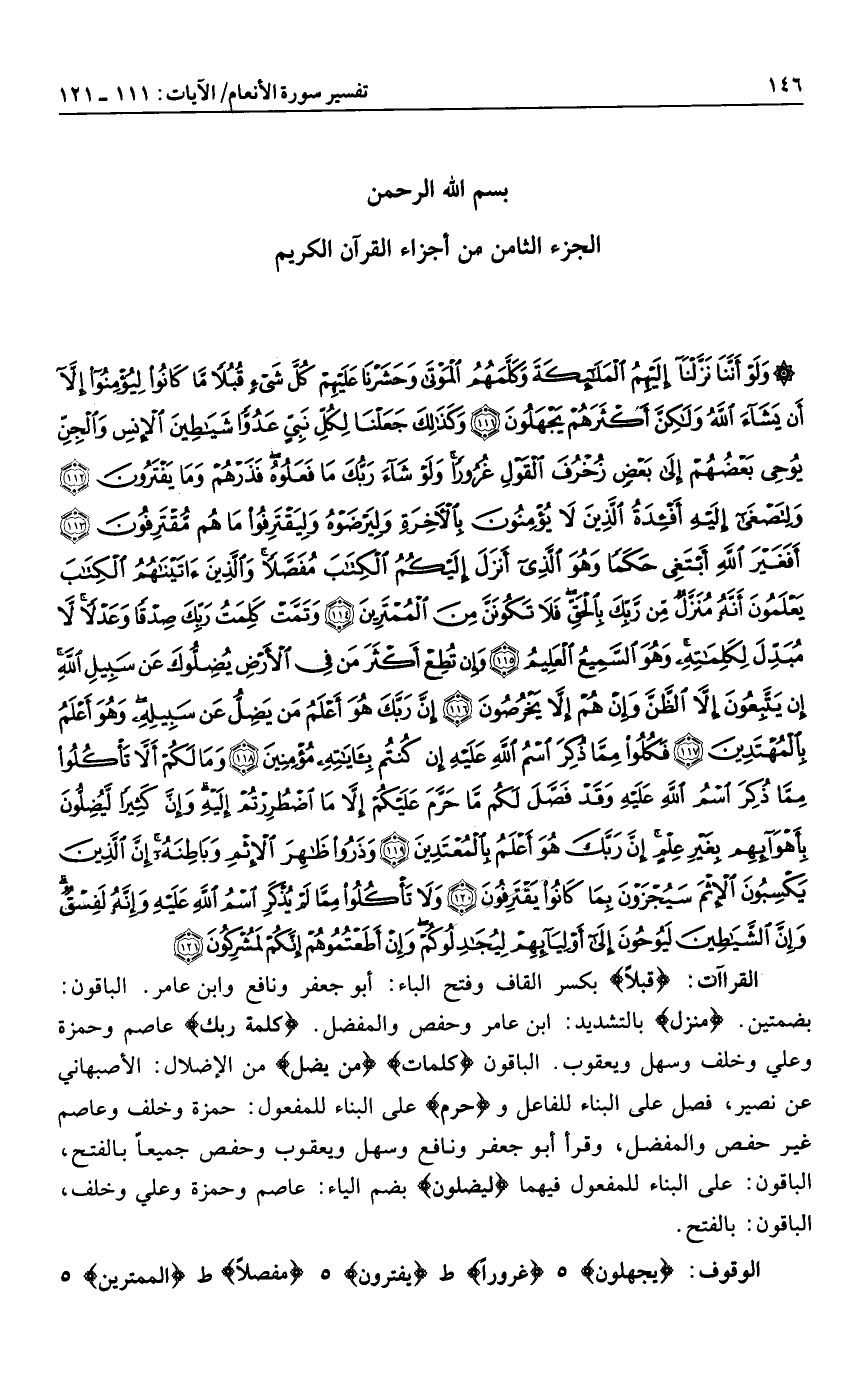 ١٤٦
تفسير سورة الأنعام/ الآيات: ١١١ - ١٢١
بسم الله الرحمن
الجزء الثامن من أجزاء القرآن الكريم
۞ وَلَوْ أَنَّنَا نَزَّلْنَآ إِلَيْهِمُ ٱلْمَلَٰٓئِكَةَ وَكَلَّمَهُمُ ٱلْمَوْتَىٰ وَحَشَرْنَا عَلَيْهِمْ كُلَّ شَىْءٍ قُبُلًا مَّا كَانُوا۟ لِيُؤْمِنُوٓا۟ إِلَّآ
أَن يَشَآءَ ٱللَّهُ وَلَٰكِنَّ أَكْثَرَهُمْ يَجْهَلُونَ ﴿١١١﴾ وَكَذَٰلِكَ جَعَلْنَا لِكُلِّ نَبِىٍّ عَدُوًّا شَيَٰطِينَ ٱلْإِنسِ وَٱلْجِنِّ
يُوحِى بَعْضُهُمْ إِلَىٰ بَعْضٍ زُخْرُفَ ٱلْقَوْلِ غُرُورًا ۚ وَلَوْ شَآءَ رَبُّكَ مَا فَعَلُوهُ ۖ فَذَرْهُمْ وَمَا يَفْتَرُونَ ﴿١١٢﴾
وَلِتَصْغَىٰٓ إِلَيْهِ أَفْـِٔدَةُ ٱلَّذِينَ لَا يُؤْمِنُونَ بِٱلْـَٔاخِرَةِ وَلِيَرْضَوْهُ وَلِيَقْتَرِفُوا۟ مَا هُم مُّقْتَرِفُونَ ﴿١١٣﴾
أَفَغَيْرَ ٱللَّهِ أَبْتَغِى حَكَمًا وَهُوَ ٱلَّذِىٓ أَنزَلَ إِلَيْكُمُ ٱلْكِتَٰبَ مُفَصَّلًا ۚ وَٱلَّذِينَ ءَاتَيْنَٰهُمُ ٱلْكِتَٰبَ
يَعْلَمُونَ أَنَّهُۥ مُنَزَّلٌ مِّن رَّبِّكَ بِٱلْحَقِّ ۖ فَلَا تَكُونَنَّ مِنَ ٱلْمُمْتَرِينَ ﴿١١٤﴾ وَتَمَّتْ كَلِمَتُ رَبِّكَ صِدْقًا وَعَدْلًا ۚ لَّا
مُبَدِّلَ لِكَلِمَٰتِهِۦ ۚ وَهُوَ ٱلسَّمِيعُ ٱلْعَلِيمُ ﴿١١٥﴾ وَإِن تُطِعْ أَكْثَرَ مَن فِى ٱلْأَرْضِ يُضِلُّوكَ عَن سَبِيلِ ٱللَّهِ ۚ
إِن يَتَّبِعُونَ إِلَّا ٱلظَّنَّ وَإِنْ هُمْ إِلَّا يَخْرُصُونَ ﴿١١٦﴾ إِنَّ رَبَّكَ هُوَ أَعْلَمُ مَن يَضِلُّ عَن سَبِيلِهِۦ ۖ وَهُوَ أَعْلَمُ
بِٱلْمُهْتَدِينَ ﴿١١٧﴾ فَكُلُوا۟ مِمَّا ذُكِرَ ٱسْمُ ٱللَّهِ عَلَيْهِ إِن كُنتُم بِـَٔايَٰتِهِۦ مُؤْمِنِينَ ﴿١١٨﴾ وَمَا لَكُمْ أَلَّا تَأْكُلُوا۟
مِمَّا ذُكِرَ ٱسْمُ ٱللَّهِ عَلَيْهِ وَقَدْ فَصَّلَ لَكُم مَّا حَرَّمَ عَلَيْكُمْ إِلَّا مَا ٱضْطُرِرْتُمْ إِلَيْهِ ۗ وَإِنَّ كَثِيرًا لَّيُضِلُّونَ
بِأَهْوَآئِهِم بِغَيْرِ عِلْمٍ ۗ إِنَّ رَبَّكَ هُوَ أَعْلَمُ بِٱلْمُعْتَدِينَ ﴿١١٩﴾ وَذَرُوا۟ ظَٰهِرَ ٱلْإِثْمِ وَبَاطِنَهُۥٓ ۚ إِنَّ ٱلَّذِينَ
يَكْسِبُونَ ٱلْإِثْمَ سَيُجْزَوْنَ بِمَا كَانُوا۟ يَقْتَرِفُونَ ﴿١٢٠﴾ وَلَا تَأْكُلُوا۟ مِمَّا لَمْ يُذْكَرِ ٱسْمُ ٱللَّهِ عَلَيْهِ وَإِنَّهُۥ لَفِسْقٌ ۗ
وَإِنَّ ٱلشَّيَٰطِينَ لَيُوحُونَ إِلَىٰٓ أَوْلِيَآئِهِمْ لِيُجَٰدِلُوكُمْ ۖ وَإِنْ أَطَعْتُمُوهُمْ إِنَّكُمْ لَمُشْرِكُونَ ﴿١٢١﴾
القراآت: ﴿قبلاً﴾ بكسر القاف وفتح الباء: أبو جعفر ونافع وابن عامر. الباقون:
بضمتين. ﴿منزل﴾ بالتشديد: ابن عامر وحفص والمفضل. ﴿كلمة ربك﴾ عاصم وحمزة
وعلي وخلف وسهل ويعقوب. الباقون ﴿كلمات﴾ ﴿من يضل﴾ من الإضلال: الأصبهاني
عن نصير، فصل على البناء للفاعل و ﴿حرم﴾ على البناء للمفعول: حمزة وخلف وعاصم
غير حفص والمفضل، وقرأ أبو جعفر ونافع وسهل ويعقوب وحفص جميعاً بالفتح،
الباقون: على البناء للمفعول فيهما ﴿ليضلون﴾ بضم الياء: عاصم وحمزة وعلي وخلف،
الباقون: بالفتح.
الوقوف: ﴿يجهلون﴾ ٥ ﴿غروراً﴾ ط ﴿يفترون﴾ ٥ ﴿مفصلاً﴾ ط ﴿الممترين﴾ ٥